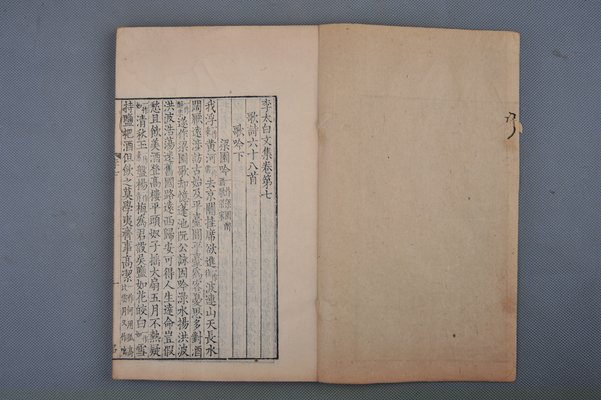 李太白文集卷第七
歌詩六十八首
歌吟下
梁園吟
我浮黃河去京關挂席欲進波連山天長水
闊厭遠涉訪古始及平臺間平臺為客憂思多對酒
遂作梁園歌却憶蓬池阮公詠因吟淥水揚洪波
洪波浩蕩迷舊國路遠西歸安可得人生達命豈假
愁且飲美酒登高樓平頭奴子搖大扇五月不熱疑
清秋玉盤楊梅為君設吳鹽如花皎白雪
持鹽把酒但飲之莫學夷齊事高潔